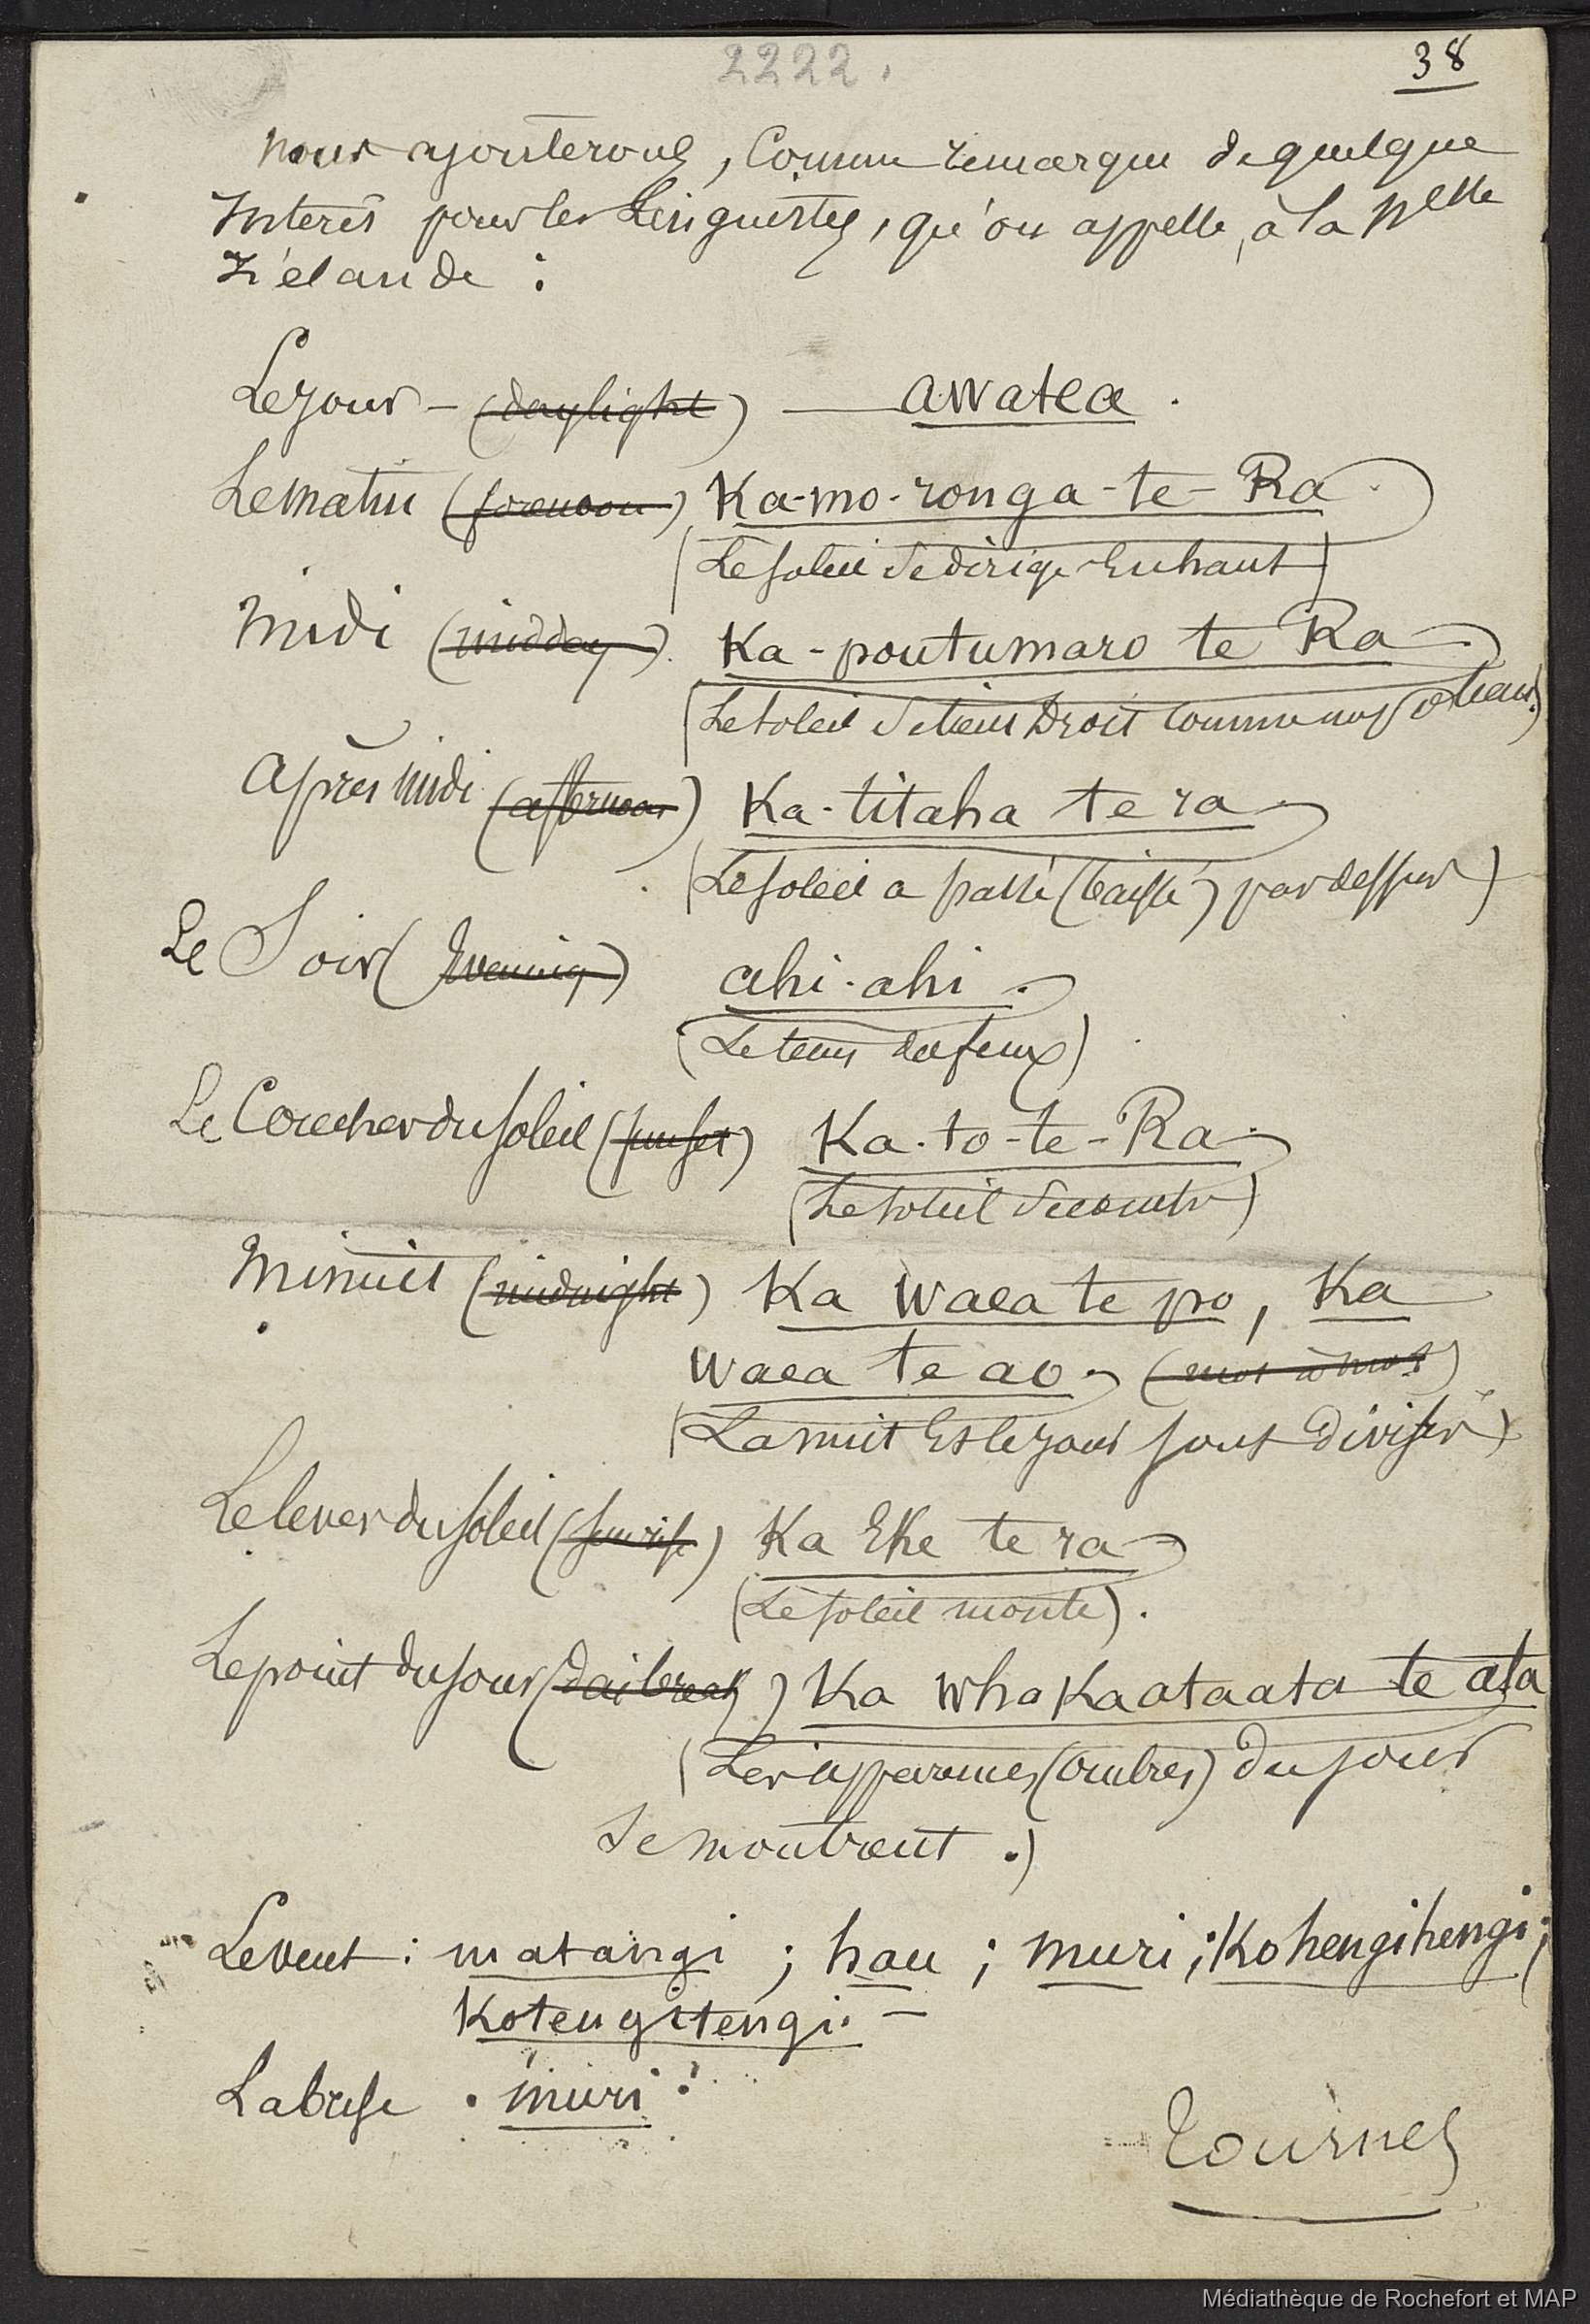 2222.
38
nous ajouterons, comme remarque de quelque
Interêt pour les Linguistes, qu'on appelle, à la Nelle
Zélande :
Le jour - (daylight) — awatea.
Le matin (forenoon) Ka-mo-ronga-te-Ra.
(Le soleil se dirige en haut)
midi (midday). Ka-poutumaro te Ra
(Le soleil se tient Droit comme un poteau.)
après midi (afternoon) Ka-titaha te ra
(Le soleil a passé (baissé) par dessus)
Le Soir (Evening) ahi-ahi.
(Le tems des feux)
Le Coucher du soleil (sunset) Ka-to-te-Ra.
(Le soleil se couche)
Minuit (midnight) Ka waea te po, Ka
waea te ao. (mot à mot)
(La nuit et le jour sont divisés)
Le lever du soleil (sunrise) Ka Eke te ra
(Le soleil monte).
Le point du jour (daibreak) Ka whaKaataata te ata
(Les apparences (ombres) du jour
se montrent.)
Le vent : matangi ; hau ; muri ; Kohengihengi ;
Kotengitengi. -
La brise . muri.
Tournez
Médiathèque de Rochefort et MAP